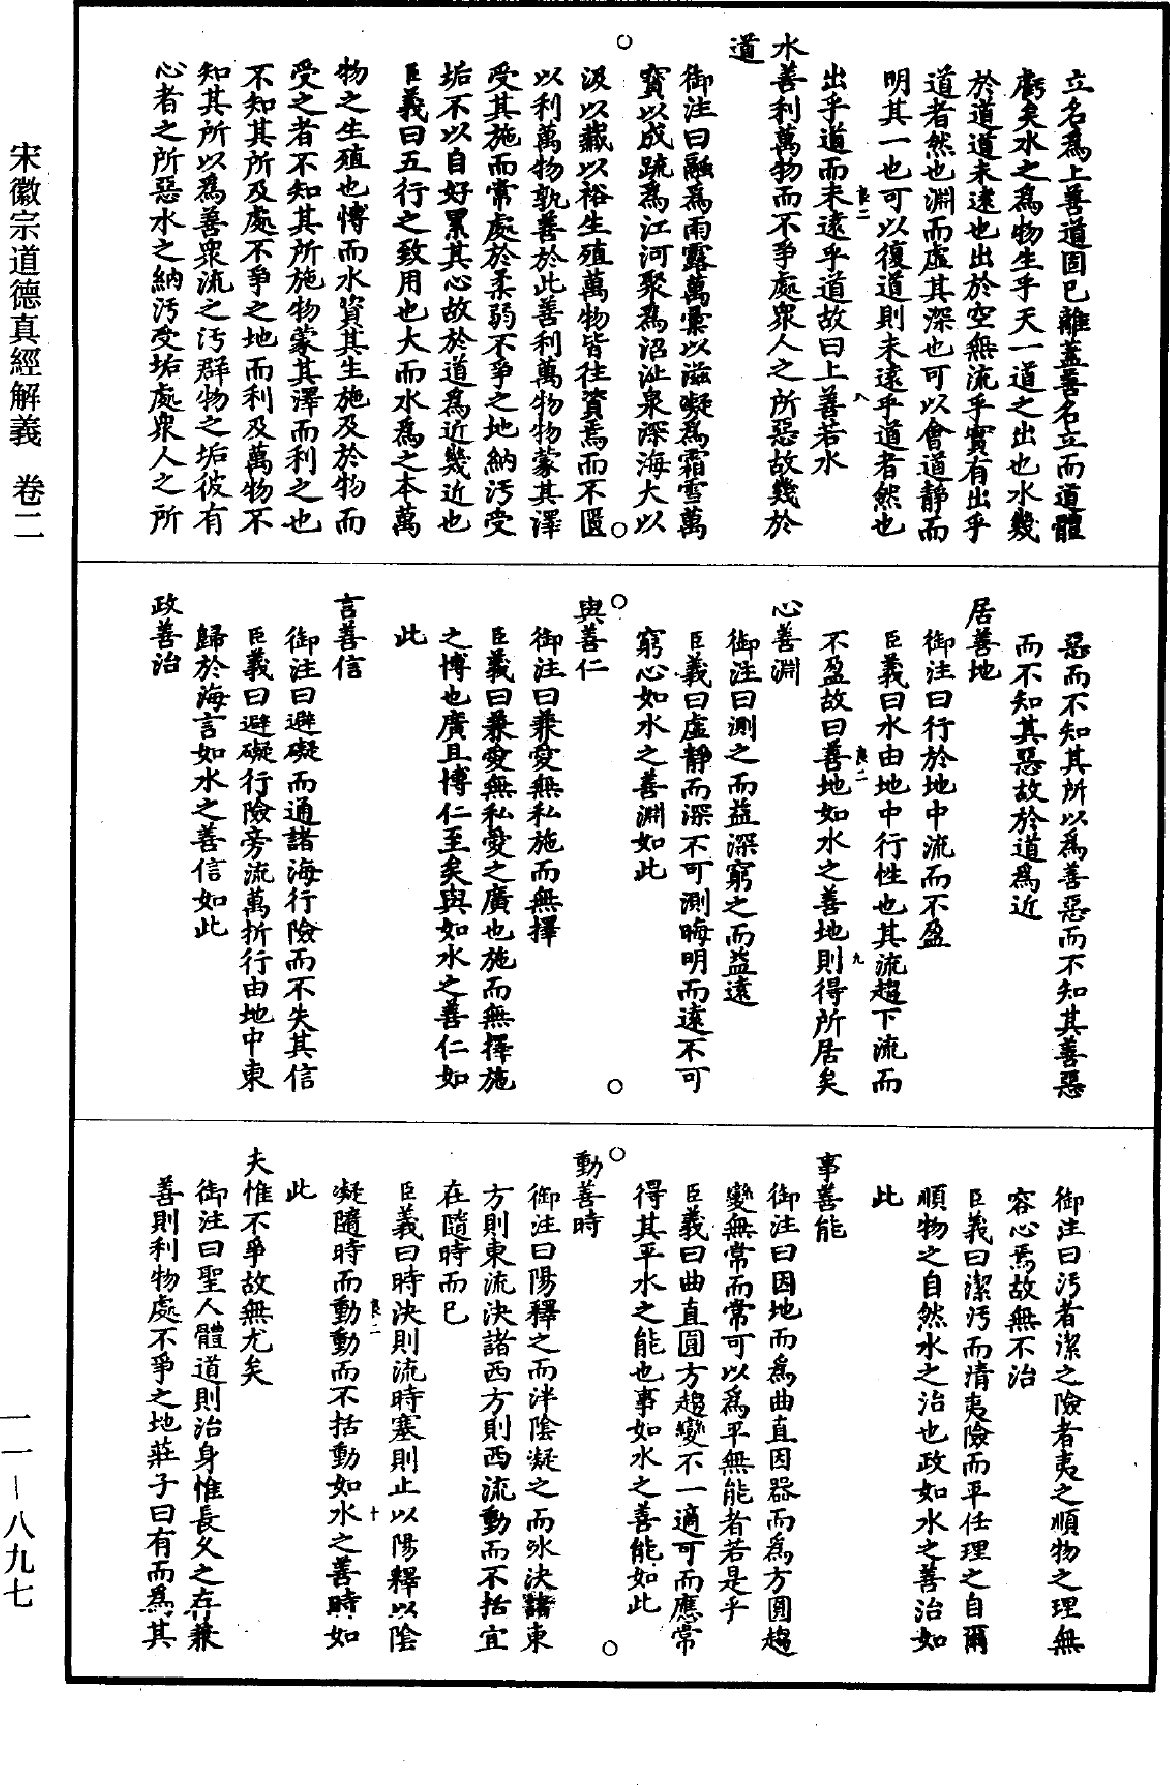 宋徽宗道德真經解義　卷二
立名爲上善道固已離蓋善名立而道體
虧矣水之爲物生乎天一道之出也水幾
於道道未遠也出於空無流乎實有出乎
道者然也淵而虛其深也可以會道靜而
明其一也可以復道則未遠乎道者然也
出乎道而未遠乎道故曰上善若水
水善利萬物而不爭處衆人之所惡故幾於
道
御注曰融爲雨露萬彙以滋凝爲霜雪萬
寶以成疏爲江河聚爲沼沚泉深海大以
汲以藏以裕生殖萬物皆往資焉而不匱
以利萬物孰善於此善利萬物物蒙其澤
受其施而常處於柔弱不爭之地納汚受
垢不以自好累其心故於道爲近幾近也
臣義曰五行之致用也大而水爲之本萬
物之生殖也博而水資其生施及於物而
受之者不知其所施物蒙其澤而利之也
不知其所及處不爭之地而利及萬物不
知其所以爲善衆流之汚群物之垢彼有
心者之所惡水之納汚受垢處衆人之所
惡而不知其所以爲善惡而不知其善惡
而不知其惡故於道爲近
居善地
御注曰行於地中流而不盈
臣義曰水由地中行性也其流趨下流而
不盈故曰善地如水之善地則得所居矣
心善淵
御注曰測之而益深窮之而益遠
臣義曰虛靜而深不可測晦明而遠不可
窮心如水之善淵如此
與善仁
御注曰兼愛無私施而無擇
臣義曰兼愛無私愛之廣也施而無擇施
之博也廣且博仁至矣與如水之善仁如
此
言善信
御注曰避礙而通諸海行險而不失其信
臣義曰避礙行險旁流萬折行由地中東
歸於海言如水之善信如此
政善治
御注曰汚者潔之險者夷之順物之理無
容心焉故無不治
臣義曰潔汚而清夷險而平任理之自爾
順物之自然水之治也政如水之善治如
此
事善能
御注曰因地而爲曲直因器而爲方圓趨
變無常而常可以爲平無能者若是乎
臣義曰曲直圓方趨變不一適可而應常
得其平水之能也事如水之善能如此
動善時
御注曰陽釋之而泮陰凝之而冰決諸東
方則東流決諸西方則西流動而不括宜
在隨時而已
臣義曰時決則流時塞則止以陽釋以陰
凝隨時而動動而不括動如水之善時如
此
夫惟不爭故無尤矣
御注曰聖人體道則治身惟長久之存兼
善則利物處不爭之地莊子曰有而爲其
一一—八九七